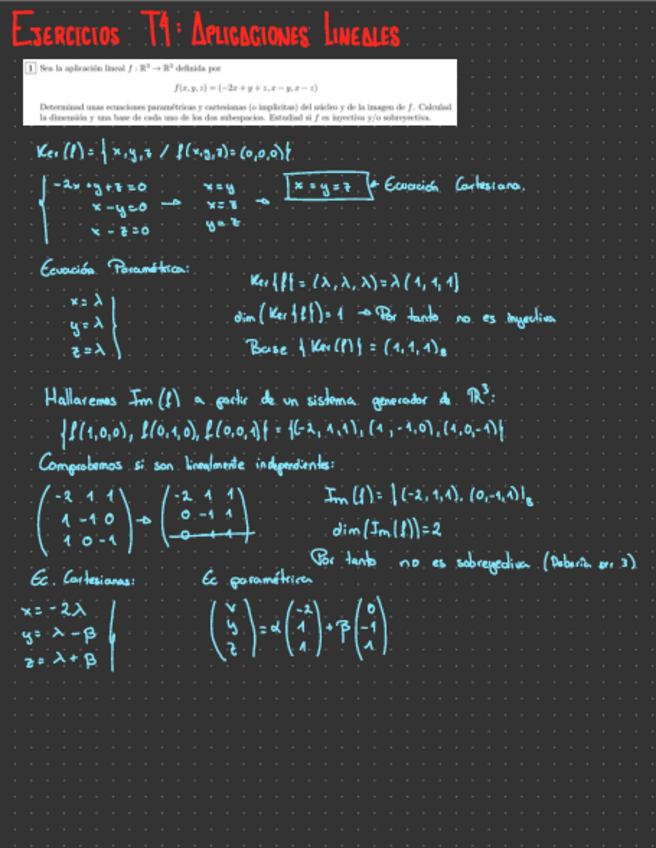 EJERCICIOS T4: APLICACIONES LINEALES
1 Sea la aplicación lineal f : ℝ³ → ℝ³ definida por
f(x, y, z) = (−2x + y + z, x − y, x − z)
Determinad unas ecuaciones paramétricas y cartesianas (o implícitas) del núcleo y de la imagen de f. Calculad
la dimensión y una base de cada uno de los dos subespacios. Estudiad si f es inyectiva y/o sobreyectiva.
Ker (f) = { x,y,z / f(x,y,z) = (0,0,0)}
-2x +y+z=0 x=y
x -y=0 → x=z → x=y=z ← Ecuación Cartesiana.
x - z=0 y=z
Ecuación Paramétrica:
x=λ
y=λ
z=λ
Ker{f} = (λ, λ, λ)=λ(1, 1, 1)
dim(Ker{f})=1 → Por tanto no es inyectiva
Base {Ker(f)} = (1,1,1)B
Hallaremos Im (f) a partir de un sistema generador de ℝ³:
{f(1,0,0), f(0,1,0), f(0,0,1)} = {(-2, 1,1), (1,-1,0), (1,0,-1)}
Comprobemos si son linealmente independientes:
-2 1 1 → -2 1 1
1 -1 0 0 -1 1
1 0 -1
Im(f) = {(-2,1,1), (0,-1,1)}B
dim(Im(f))=2
Por tanto no es sobreyectiva (Debería ser 3)
Ec. Cartesianas: Ec paramétrica
x= -2λ
y= λ - β
z= λ + β
(x y z) = α (-2 1 1) + β (0 -1 1)